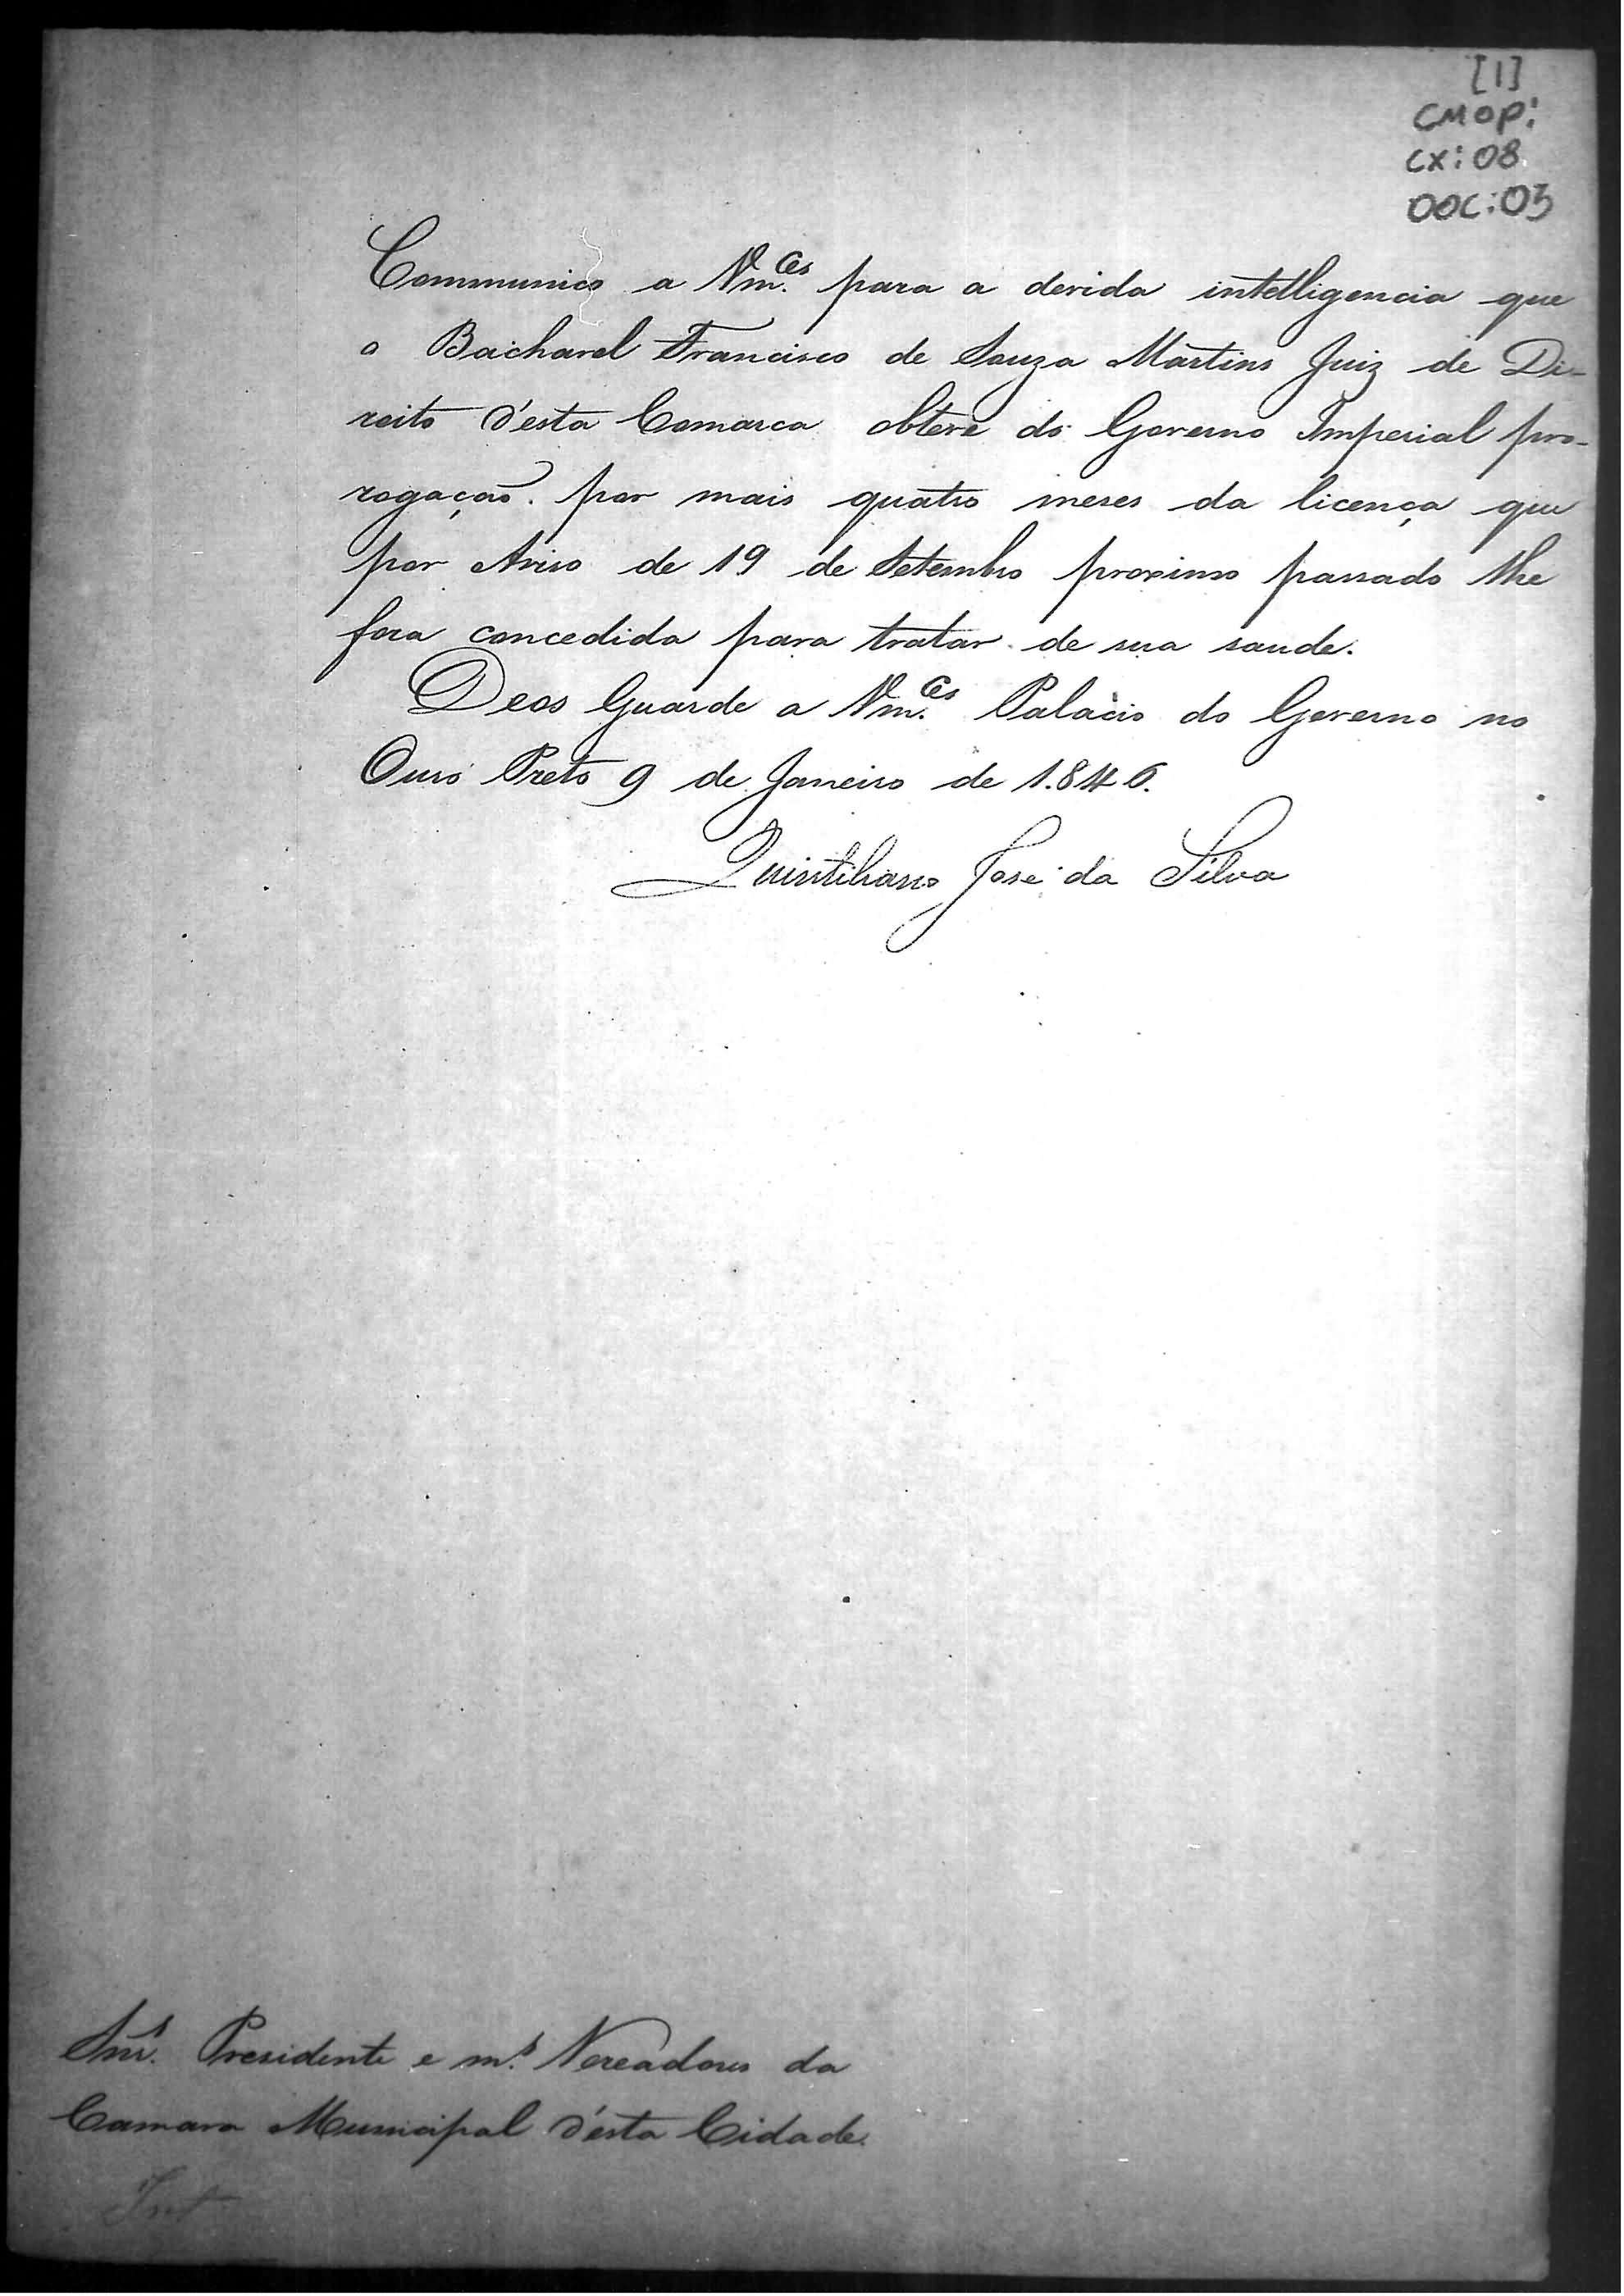 [1]
CMOP:
CX: 08
DOC: 03
Communico a Vm.ces para a devida intelligencia que
o Bacharel Francisco de Souza Martins Juiz de Di-
reito d'esta Comarca obteve do Governo Imperial pro-
rogação por mais quatro meses da licença que
por Aviso de 19 de Setembro proximo passado lhe
fora concedida para tratar de sua saude.
Deos Guarde a Vm.ces Palacio do Governo no
Ouro Preto 9 de Janeiro de 1.846.
Quintiliano José da Silva
Snr.s Presidente e m.s Vereadores da
Camara Municipal d'esta Cidade.